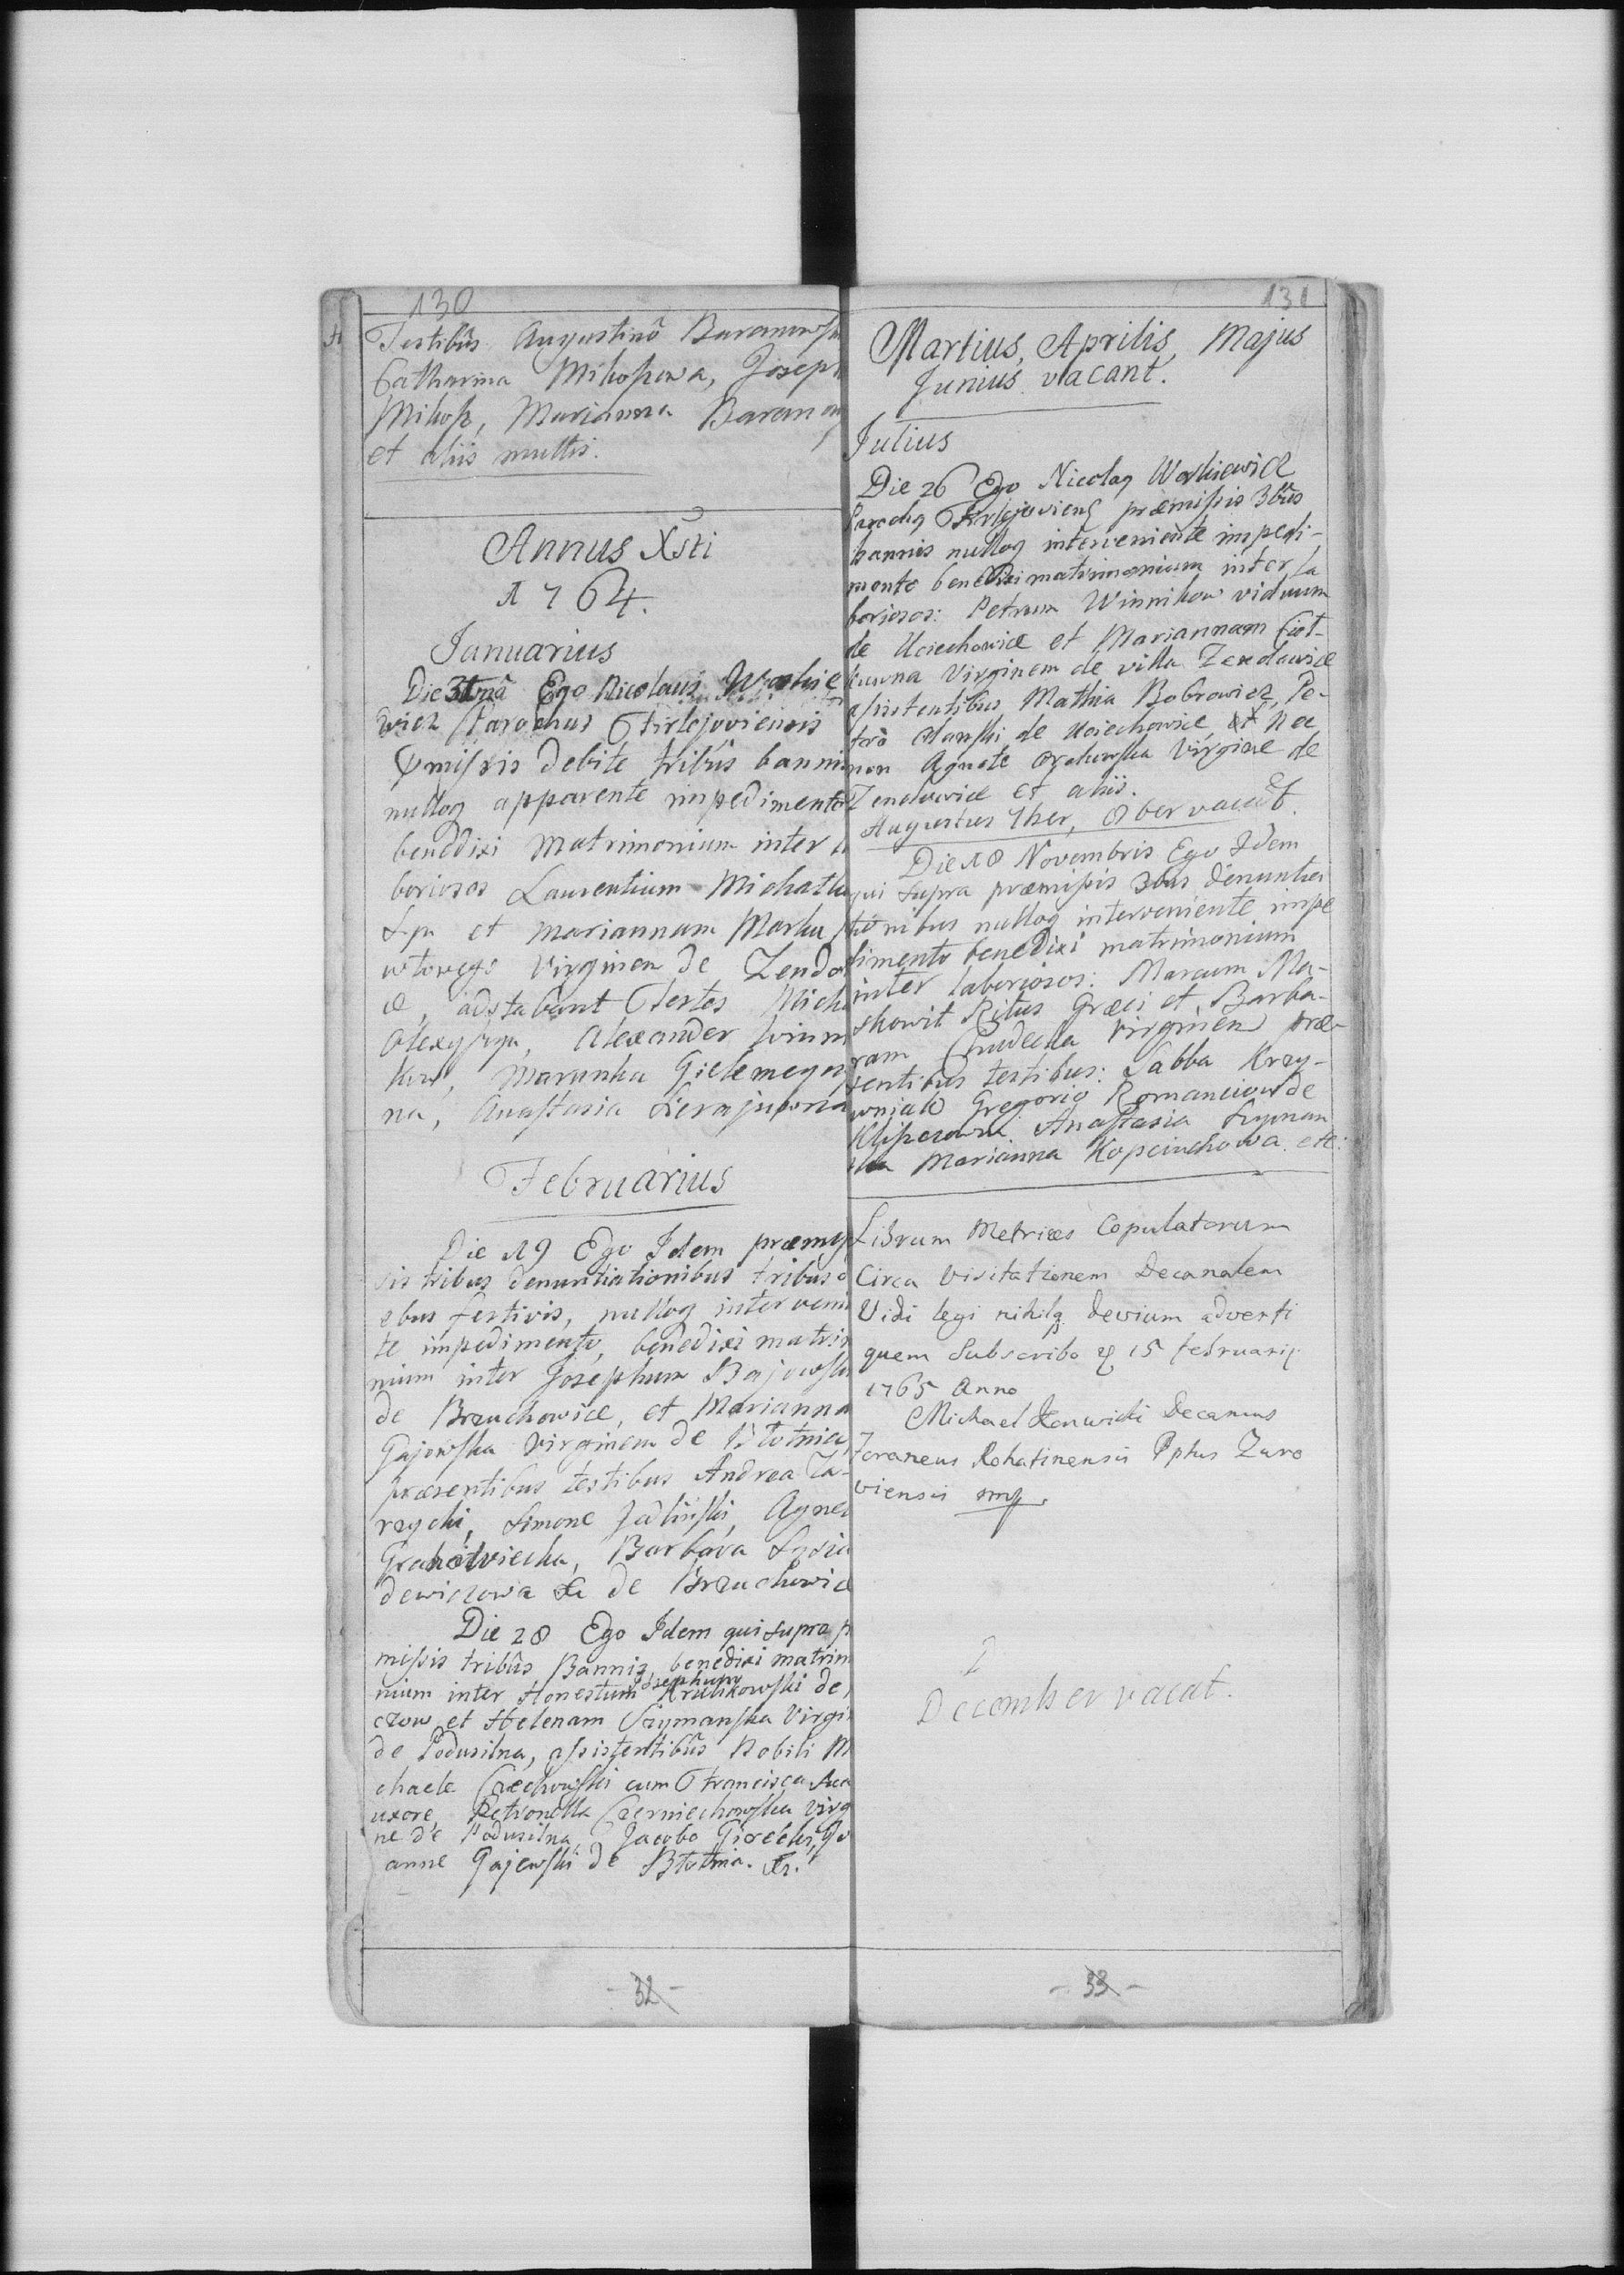 130
Testibûs Augustinô Baranowsk
Catharina Mikoszowa, Joseph
Mikosz, Marianna Baran
et aliis multis.
Annus Xsti
1764.
Januarius
Die Ego Nicolaus Woskie
wicz Parochus Firlejoviensis
missis debite tribûs banni
nulloq apparente impedimento
benedixi Matrimonium inter la
boriosos Laurentium Michatk
et Mariannam Marku
wtowego Virginem de Zendo
adstabant Testes Mich
Alexander
Marunka
na, Anastasia
Februarius
Die 19 Ego Idem præmis
sis tribus denuntiationibus tribus
ebus festivis, nulloq interveni
te impedimento, benedixi matri
nium inter Josephum Bajowsk
de Brzuchowice, et Marianna
Gajowska Virginem de Błotnia,
præsentibus testibus Andrea Za-
rzycki, Simone Jadlinski, Agnet
Barbara
dewiczowa de Brzuchowic
Die 28 Ego Idem qui supra p
missis tribûs Bannis, benedixi matrim
Josephum
nium inter Honestum Krulikowski de
czow et Helenam Szymanska Virgi
de Podusilna, assistentibûs Nobili M
chaele Czechowski cum Francisca sua
uxore, Petronella Czerniechowska virg
ne de Podusilna, Jacobo Jo
anne Gajewski de Błotnia. &.
- 32 -
131
Martius, Aprilis, Majus
Junius vacant.
Julius
Die 26 Ego Nicolaq Woskiewicz
Parochq Firlejoviens præmissis 3bûs
bannis nulloq interveniente impedi-
mento benedixi matrimonium inter la
boriosos: Petrum Winnikow viduum
de Uciechowice et Mariannam
Virginem de villa Zendowice
assistentibus Mathia Bobrowicz, Pe-
trô de Uciechowice et nec
non Agnete Virgine de
Zendowice et aliis.
Augustus 7ber, 8ber vacât.
Die 18 Novembris Ego Idem
qui supra præmissis 3bus denuntia
tionibus nulloq interveniente impe
dimento benedixi matrimonium
inter laboriosos: Marcum Ma-
skowit Ritus Græci et Barba-
ram Virginem præ-
sentibus testibus: Sabba Krzy-
wniak Gregorio Romanciow de
Anastasia Szyman
ska Marianna Kopciuchowa etc:
Librum Metrices Copulatorum
Circa Visitationem Decanalem
Vidi legi nihilq devium adverti
quem Subscribo 15 februarij
1765 Anno
Michael Decanus
Foraneus Rohatinensis Pptus Zuro
viensis mp.
December vacat.
- 33 -